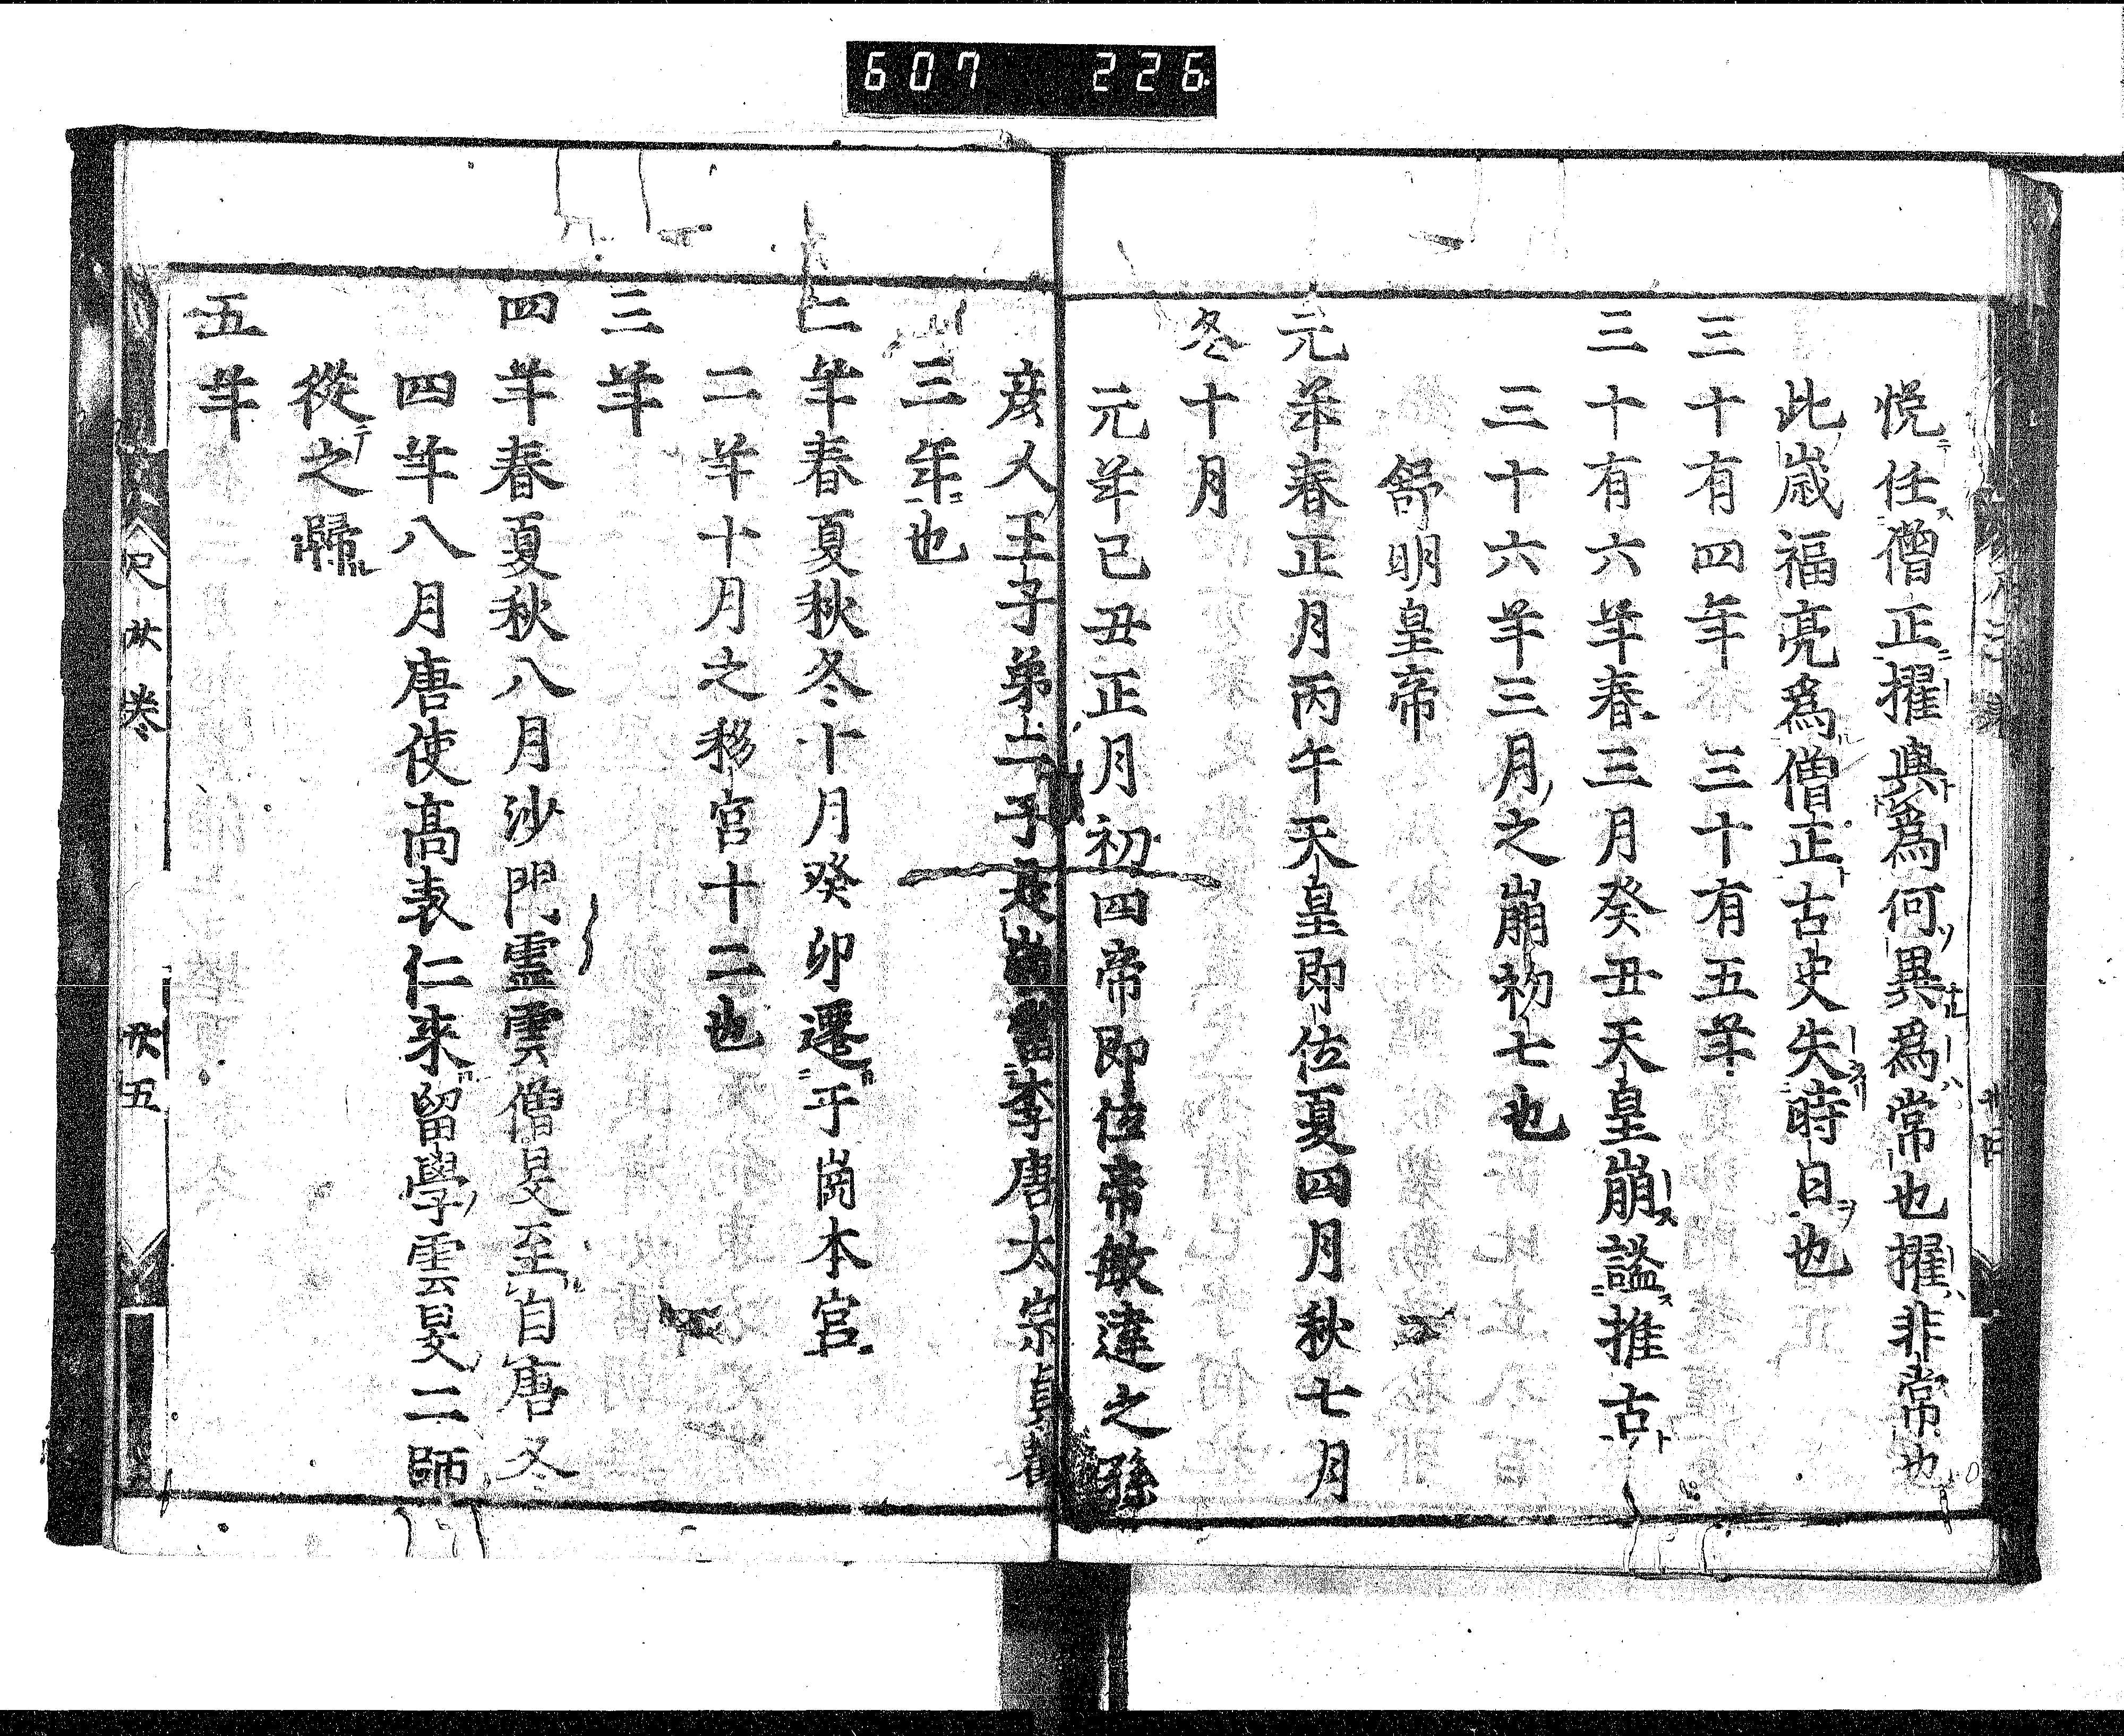 607 226
悦任僧正擢與爲何異爲常也擢非常也
此歳福亮爲僧正古史失時日也
三十有四年 三十有五年
三十有六年春三月癸丑天皇崩謚推古
三十六年三月之崩初七也
舒明皇帝
元年春正月丙午天皇即位夏四月秋七月
冬十月
元年己丑正月初四帝即位帝敏達之孫
彦人王子弟二子是歳當李唐太宗貞觀
三年也
二年春夏秋冬十月癸卯遷乎崗本宮
二年十月之移宮十二也
三年
四年春夏秋八月沙門靈雲僧旻至自唐冬
四年八月唐使髙表仁来留學雲旻二師
從之歸
五年
卷
五